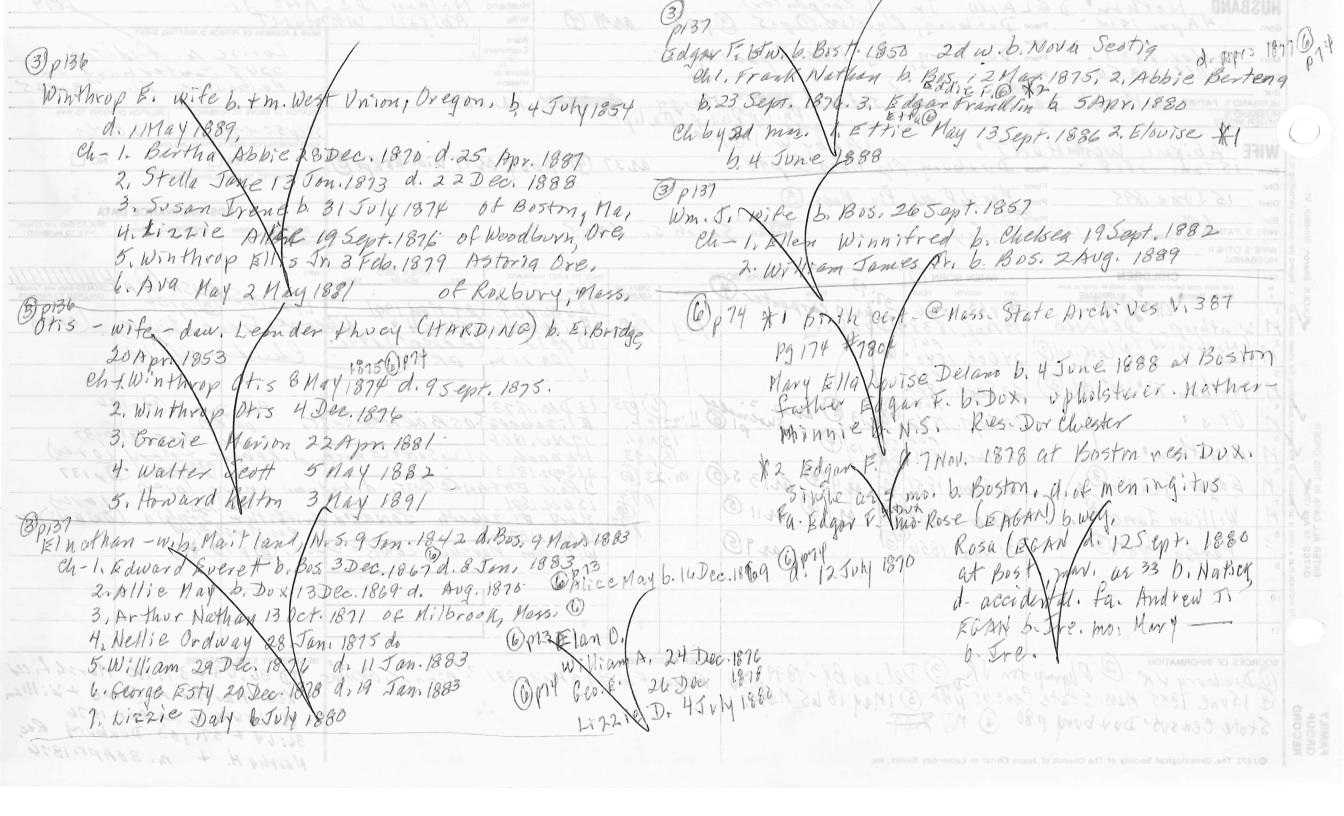 ③ p136
Winthrop E. wife b. + m. West Union, Oregon, b. 4 July 1854
d. 11 May 1889,
Ch- 1. Bertha Abbie 28 Dec. 1870 d. 25 Apr. 1887
2. Stella Jane 13 Jan. 1873 d. 22 Dec. 1888
3. Susan Irene b. 31 July 1874 of Boston, Ma,
4. Lizzie Alice 19 Sept. 1876 of Woodburn, Ore,
5. Winthrop Ellis Jr. 3 Feb. 1879 Astoria Ore,
6. Ava May 2 May 1881 of Roxbury, Mass.
③ p136
Otis - wife - dau. Leander + Lucy (HARDING) b. E. Bridge,
20 Apr. 1853
1875 ⑥ p74
Ch 1. Winthrop Otis 8 May 1874 d. 9 Sept. 1875.
2. Winthrop Otis 4 Dec. 1876
3. Gracie Marion 22 Apr. 1881
4. Walter Scott 5 May 1882
5. Howard Kelton 3 May 1891
③ p137
Elnathan - w. b. Maitland, N.S. 9 Jan. 1842 d. Bos. 9 Mar. 1883
Ch- 1. Edward Everett b. Bos 3 Dec. 1867 ⑥ d. 8 Jan. 1883
2. Allie May b. Dox 13 Dec. 1869 d. Aug. 1870
3. Arthur Nathan 13 Oct. 1871 of Milbrook, Mass. ⑥
4. Nellie Ordway 28 Jan. 1875 do
5. William 29 Dec. 1876 d. 11 Jan. 1883
6. George Esty 20 Dec 1878 d. 19 Jan. 1883
7. Lizzie Daly 6 July 1880
⑥ p73
Alice May b. 16 Dec. 1869 ⑥ p74 d. 12 July 1870
⑥ p73 Elan D.
William A. 24 Dec. 1876
⑥ p74 Geo. E. 26 Dec 1878
Lizzie D. 4 July 1880
③
p137
Edgar F. b. Bost. 1850 2d w. b. Nova Scotia
⑥ p74
Chl. Frank Nathan b. Bos. 12 Mar. 1875, 2. Abbie Berteng
Eddie F. ⑥ *2
b. 23 Sept. 1876. 3. Edgar Franklin b. 5 Apr. 1880
Etta ⑥
Ch by 2d mar. 1. Ettie May 13 Sept. 1886 2. Elouise *1
b. 4 June 1888
③ p137
Wm. J. wife b. Bos. 26 Sept. 1857
Ch- 1. Ellen Winnifred b. Chelsea 19 Sept. 1882
2. William James Jr. b. Bos. 2 Aug. 1889
⑥ p74 *1 birth cert. @ Mass. State Archives V. 387
pg 174
Mary Ella Louise Delano b. 4 June 1888 at Boston
father Edgar F. b. Dox. upholsterer. Mother-
Minnie b. N.S. Res. Dorchester
*2 Edgar F. d. 7 Nov. 1878 at Boston res. Dox.
Single mo. b. Boston, d. of meningitus
Fa. Edgar F. b. Dux mo. Rose (EAGAN) b. Wey.
Rosa (EGAN d. 12 Sept. 1880
at Bost, mar. ae 33 b. Natick,
d. accidental. Fa. Andrew J.
EGAN b. Ire. mo. Mary —
b. Ire.